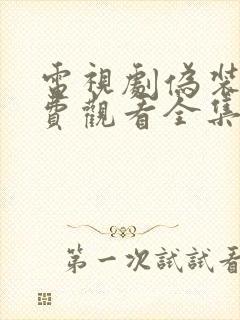 電視劇偽裝
費觀看全集
第一次試試看